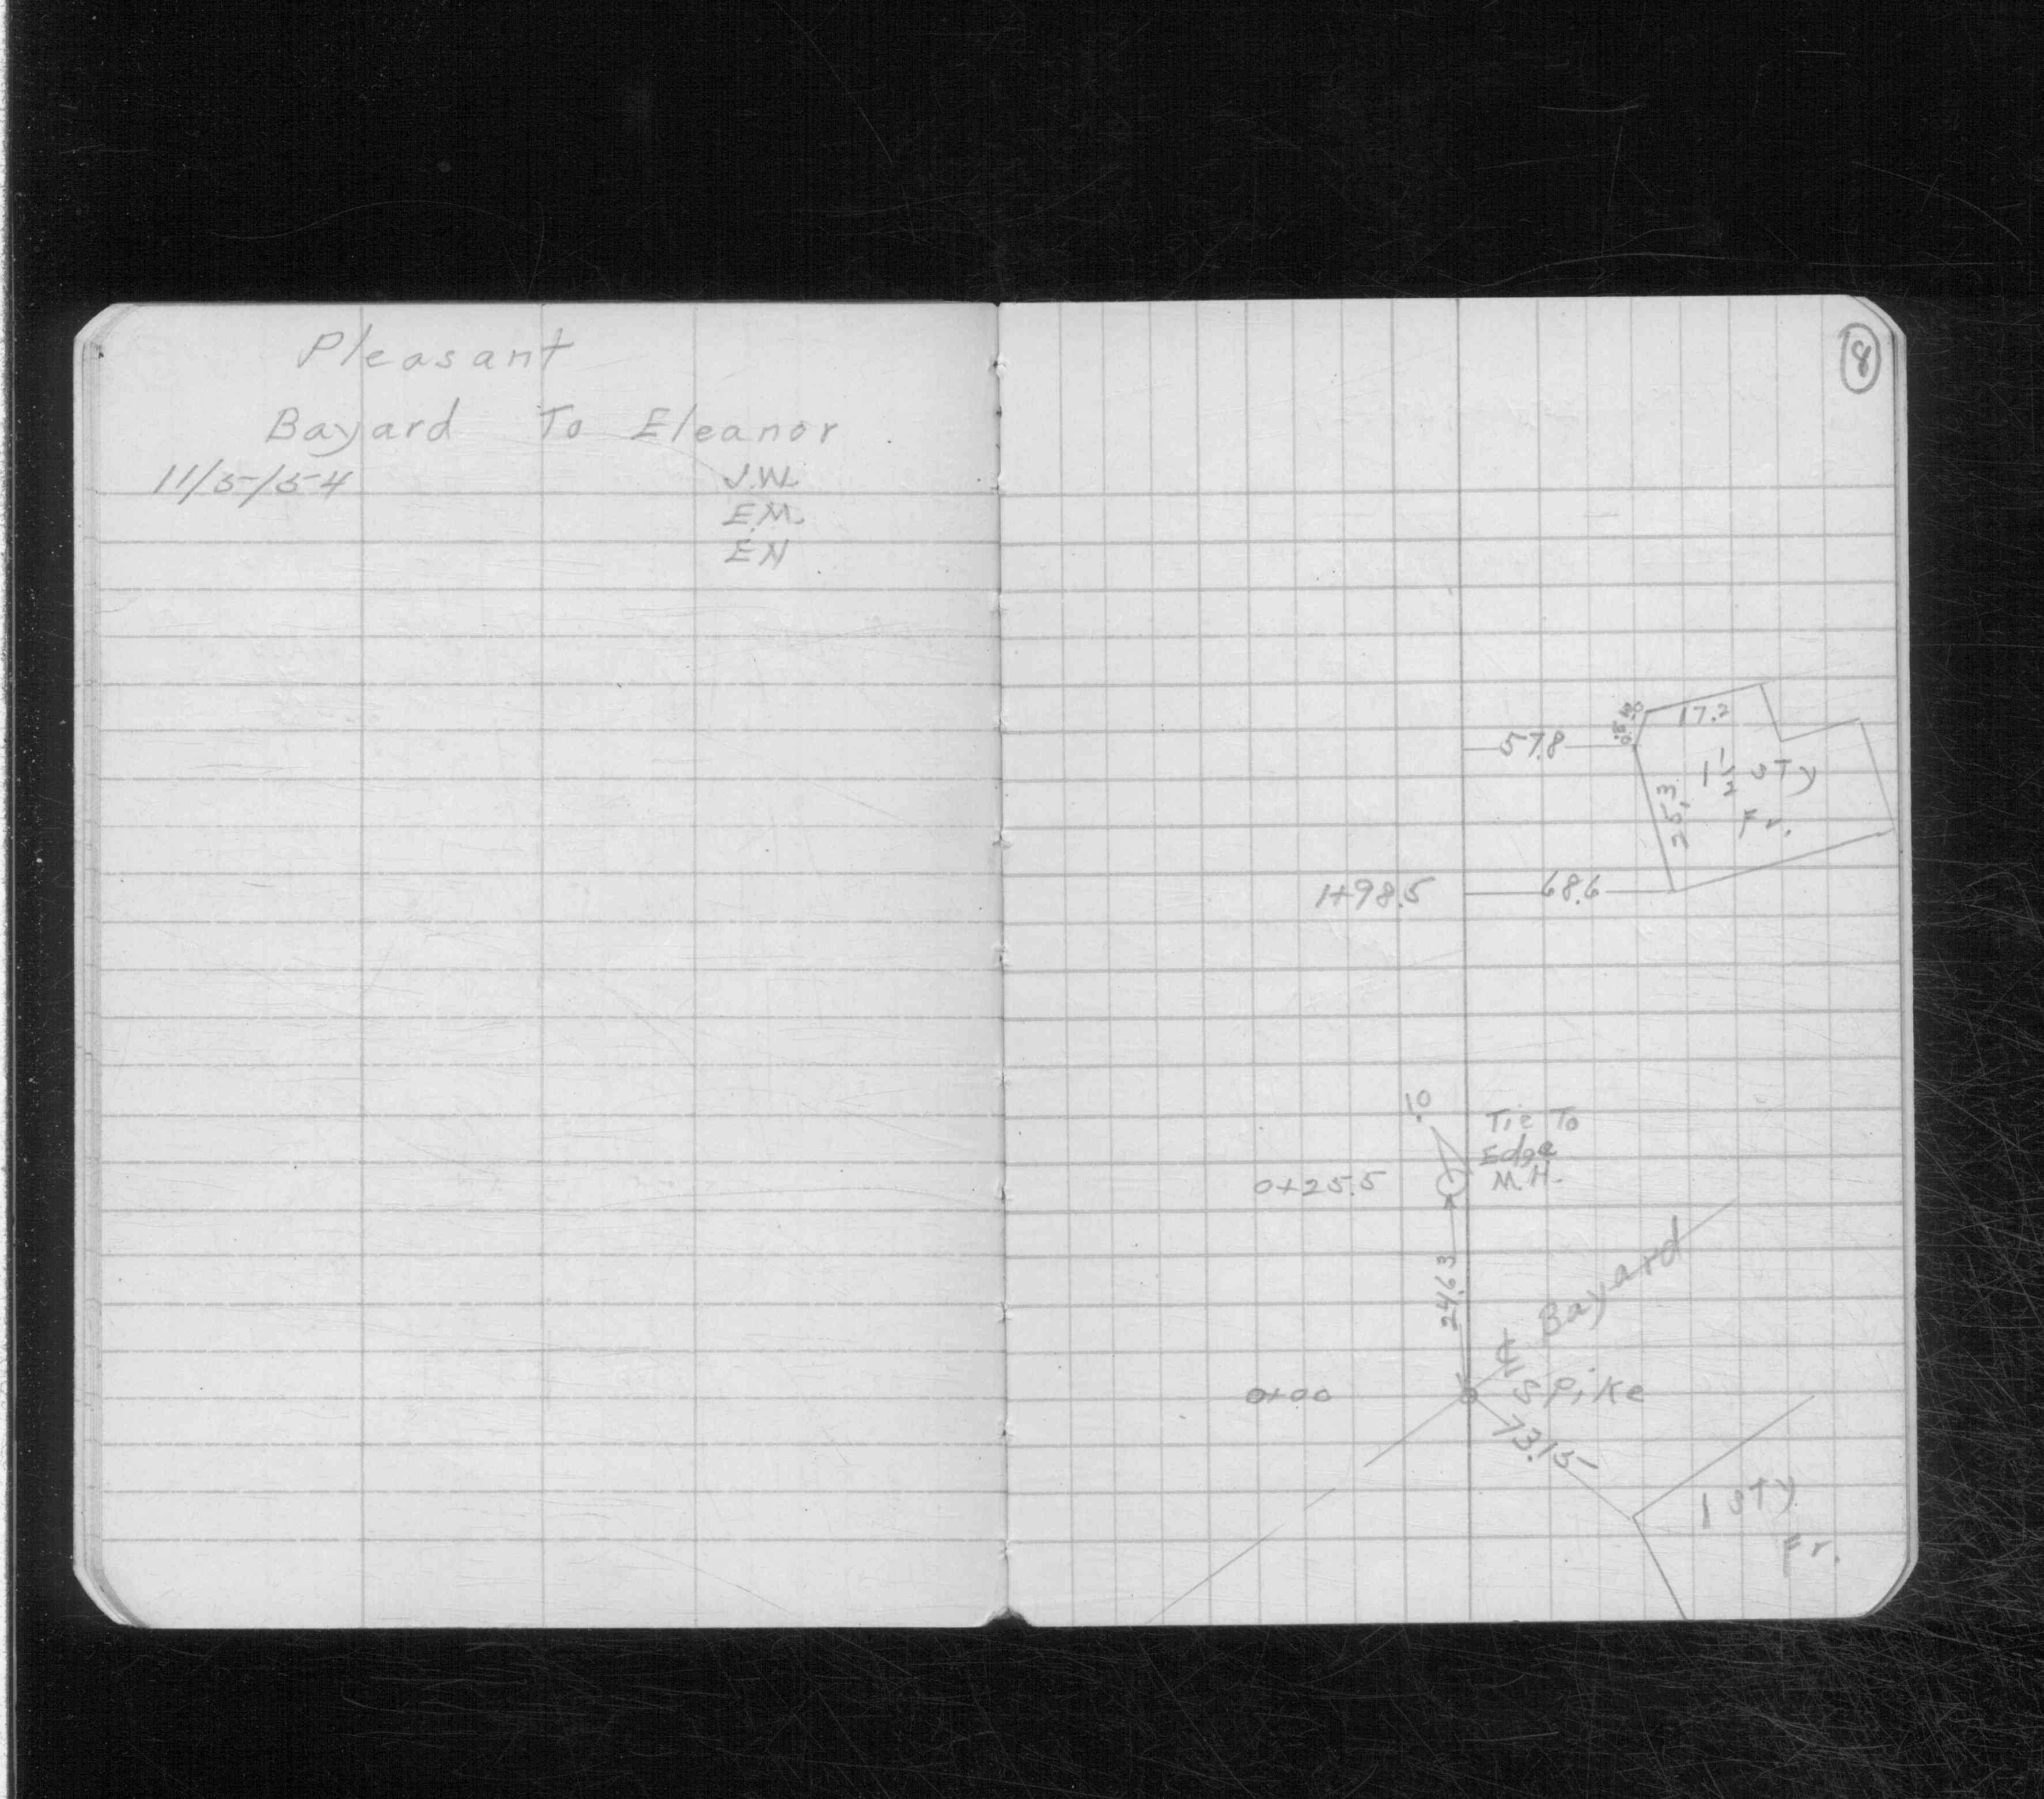 Pleasant
Bayard To Eleanor
11/5/54
J.W.
E.M.
EN
8
17.2
57.8
1 1/2 STy
Fr.
25.3
1+98.5
68.6
.10
Tie To
Edge
M.H.
0+25.5
24.63
℄ Bayard
0+00
Spike
73.15
1 STy
Fr.